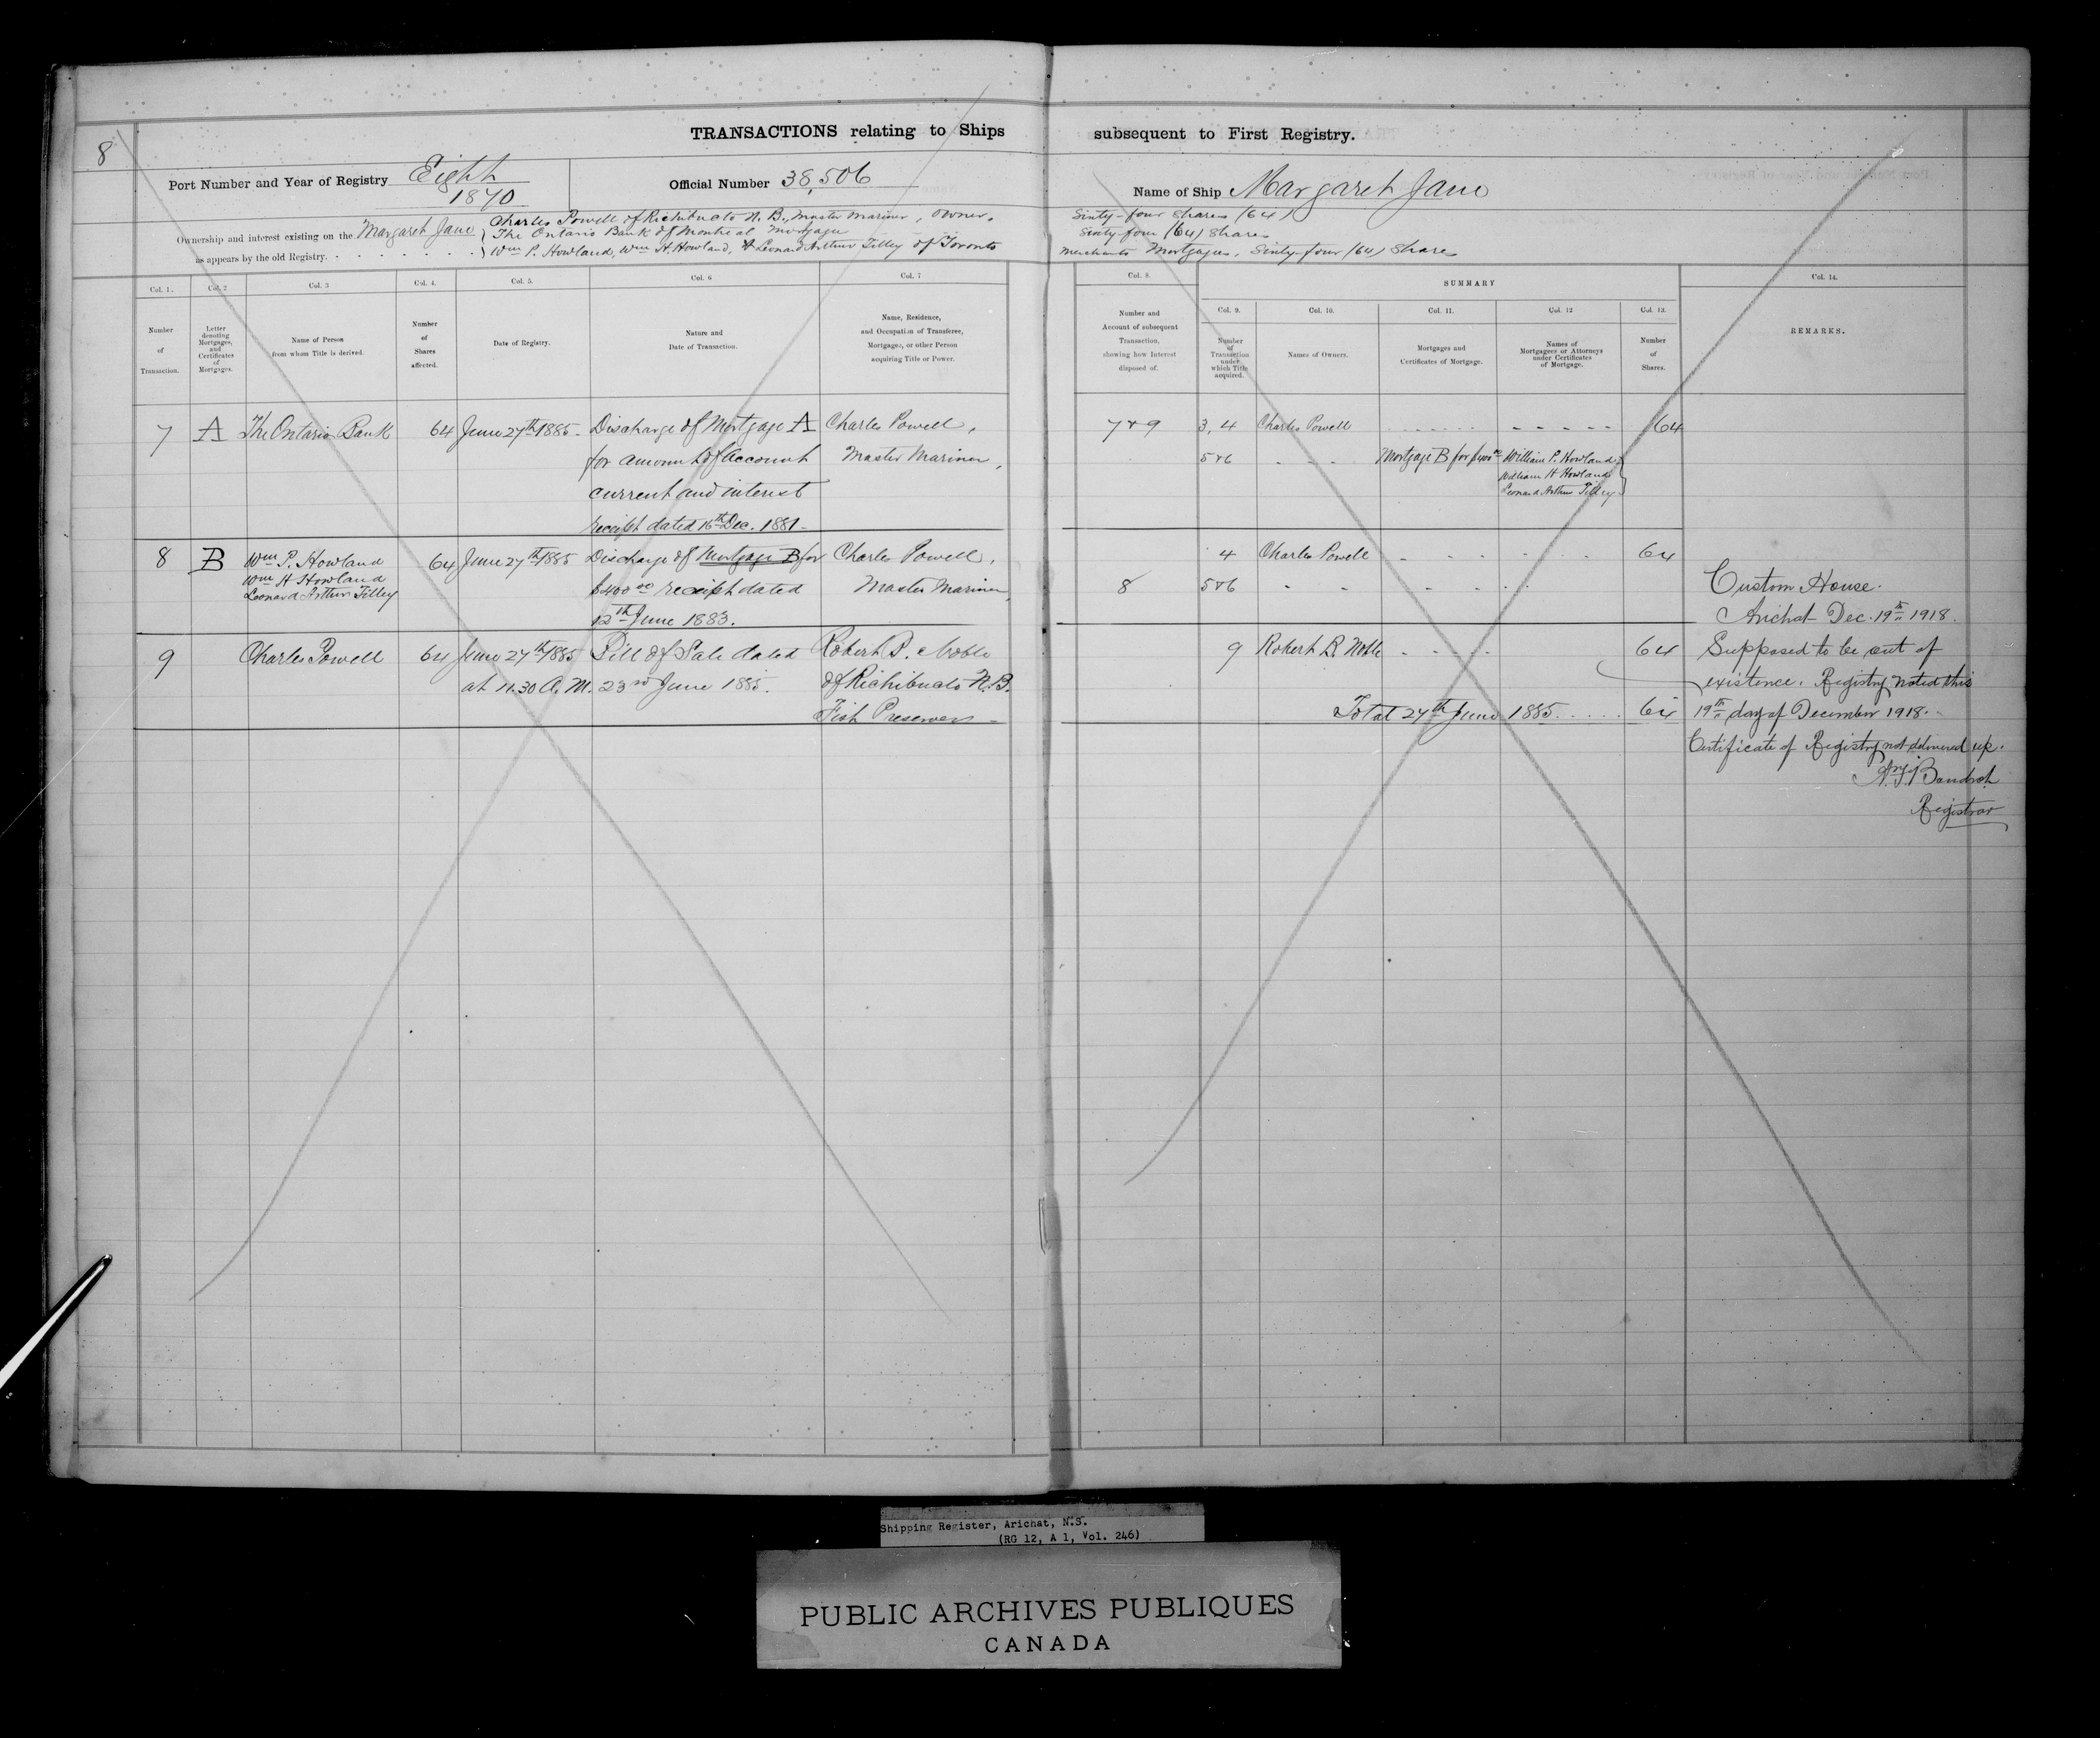 8
TRANSACTIONS relating to Ships subsequent to First Registry.
Port Number and Year of Registry Eight 1870
Official Number 38,506
Name of Ship Margaret Jane
Ownership and interest existing on the Margaret Jane as appears by the old Registry.
Charles Powell of Richibucto N. B., Master Mariner, Owner, Sixty-four shares (64)
The Ontario Bank of Montreal Mortgage Sixty four (64) Shares
Wm P. Howland, Wm H. Howland, & Leonard Arthur Tilley of Toronto Merchants Mortgagees, Sixty-four (64) Shares
Col. 1.
Number of Transaction.
Col. 2
Letter denoting Mortgages, and Certificates of Mortgages.
Col. 3
Name of Person from whom Title is derived.
Col. 4.
Number of Shares affected.
Col. 5.
Date of Registry.
Col. 6
Nature and Date of Transaction.
Col. 7
Name, Residence, and Occupation of Transferee, Mortgagee, or other Person acquiring Title or Power.
Col. 8.
Number and Account of subsequent Transaction, showing how Interest disposed of.
SUMMARY
Col. 9.
Number of Transaction under which Title acquired.
Col. 10.
Names of Owners.
Col. 11.
Mortgages and Certificates of Mortgage.
Col. 12
Names of Mortgagees or Attorneys under Certificates of Mortgage.
Col. 13.
Number of Shares.
Col. 14.
REMARKS.
7 A The Ontario Bank 64 June 27th 1885 Discharge of Mortgage A Charles Powell,
for amount of Account Master Mariner,
current and interest
receipt dated 16th Dec. 1881
8 B Wm P. Howland 64 June 27th 1885 Discharge of Mortgage B for Charles Powell,
Wm H Howland $400 00 receipt dated Master Mariner,
Leonard Arthur Tilley
12th June 1883.
9 Charles Powell 64 June 27th 1885 Bill of Sale dated Robert R. Noble
at 11.30 A. M. 23rd June 1885. of Richibucto N.B.
Fish Preserver
7 & 9 3, 4 Charles Powell 64
5 & 6 Mortgage B for $400 00 William P. Howland
William H Howland
Leonard Arthur Tilley
4 Charles Powell 64
8 5 & 6
9 Robert R. Noble 64
Total 27th June 1885 64
Custom House.
Arichat Dec. 19th 1918.
Supposed to be out of
existence. Registry noted this
19th day of December 1918.
Certificate of Registry not delivered up.
Registrar
Shipping Register, Arichat, N.S.
(RG 12, A 1, Vol. 246)
PUBLIC ARCHIVES PUBLIQUES
CANADA